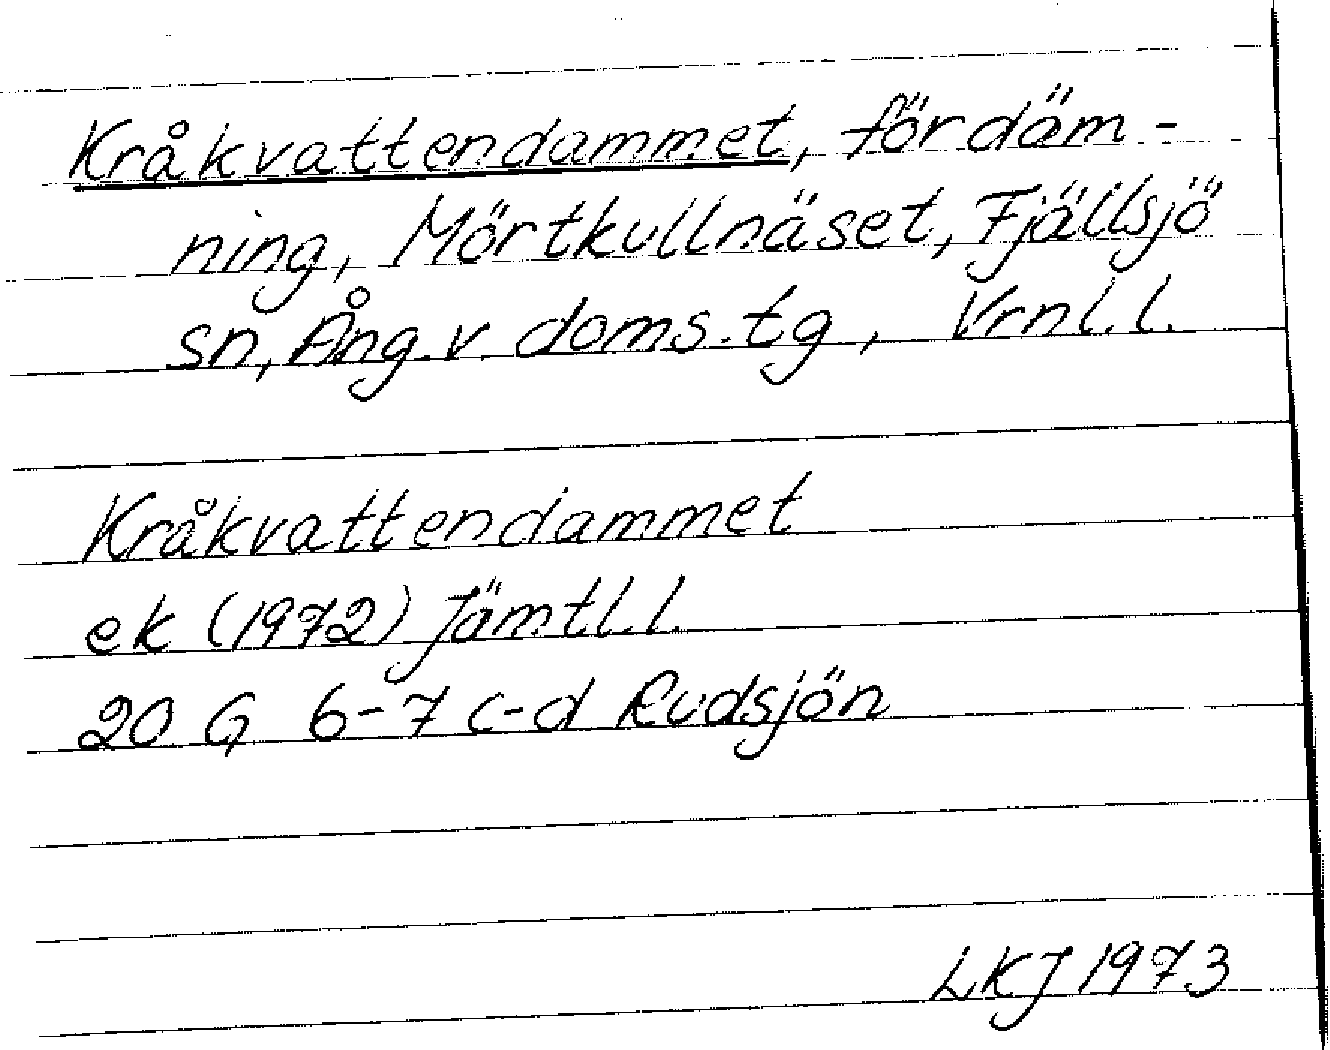 Kråkvattendammet, fördäm-
ning, Mörtkullnäset, Fjällsjö
sn, Ång. v. doms. tg, Vrnl. l.
Kråkvattendammet
ek (1972) Jämtl. l.
20 G 6-7 c-d Rudsjön
LKJ 1973